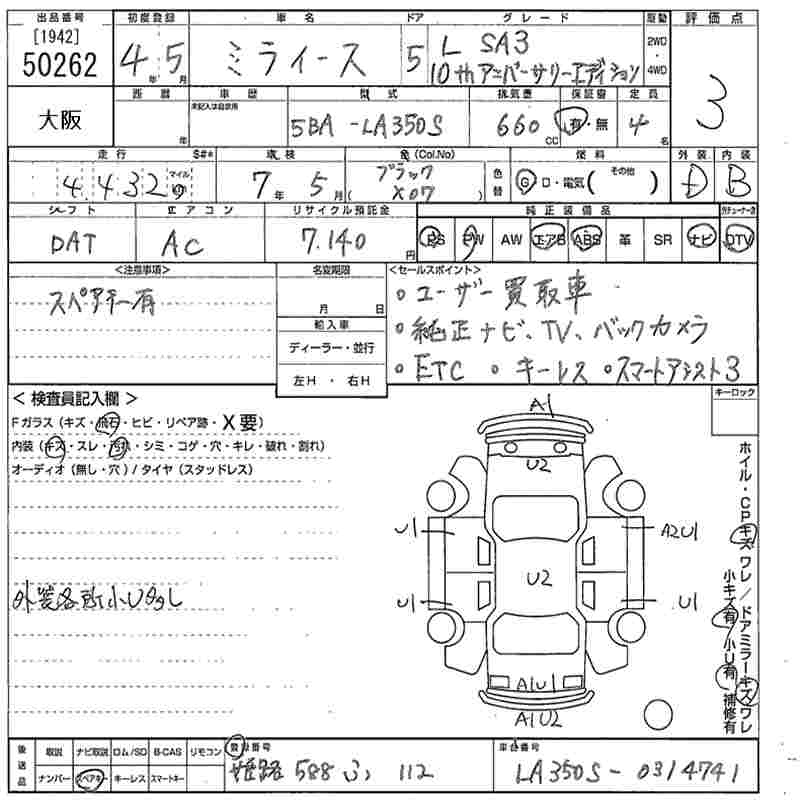 出品番号 初度登録 車名 ドア グレード 駆動 評価点
[1942]
50262 4年5月 ミライース 5 L SA3 2WD・4WD 3
10thアニバーサリーエディション
大阪 西暦 年 車歴 型式 排気量 保証書 定員
未記入は自家用
5BA -LA350S 660cc 有・無 4名
走行 S#* 車検 色(Col.No) 燃料 外装 内装
4,432 マイル km 7年5月 ブラック (X07) 色替 G・D・電気( その他 ) D B
シフト エアコン リサイクル預託金 純正装備品
DAT AC 7,140円 PS PW AW エアB ABS 革 SR ナビ DTV
<注意事項> 名変期限 <セールスポイント>
スペアキー有 月 日 ・ユーザー買取車
輸入車 ・純正ナビ、TV、バックカメラ
ディーラー・並行
左H・右H ・ETC ・キーレス ・スマートアシスト3
<検査員記入欄> キーロック
Fガラス(キズ・飛石・ヒビ・リペア跡・X要)
内装(キズ・スレ・汚れ・シミ・コゲ・穴・キレ・破れ・割れ)
オーディオ(無し・穴)/タイヤ(スタッドレス)
A1
U2
U1 A2U1
U2
U1 U1
A1U1
A1U2
外装各所小U多し
ホイル・CPキズワレ/ドアミラーキズワレ
小キズ有 小U有 補修有
後送品 取説 ナビ取説 ロム/SD B-CAS リモコン 登録番号 車台番号
ナンバー スペアキー キーレス スマートキー 姫路 588 ふ 112 LA350S-0314741